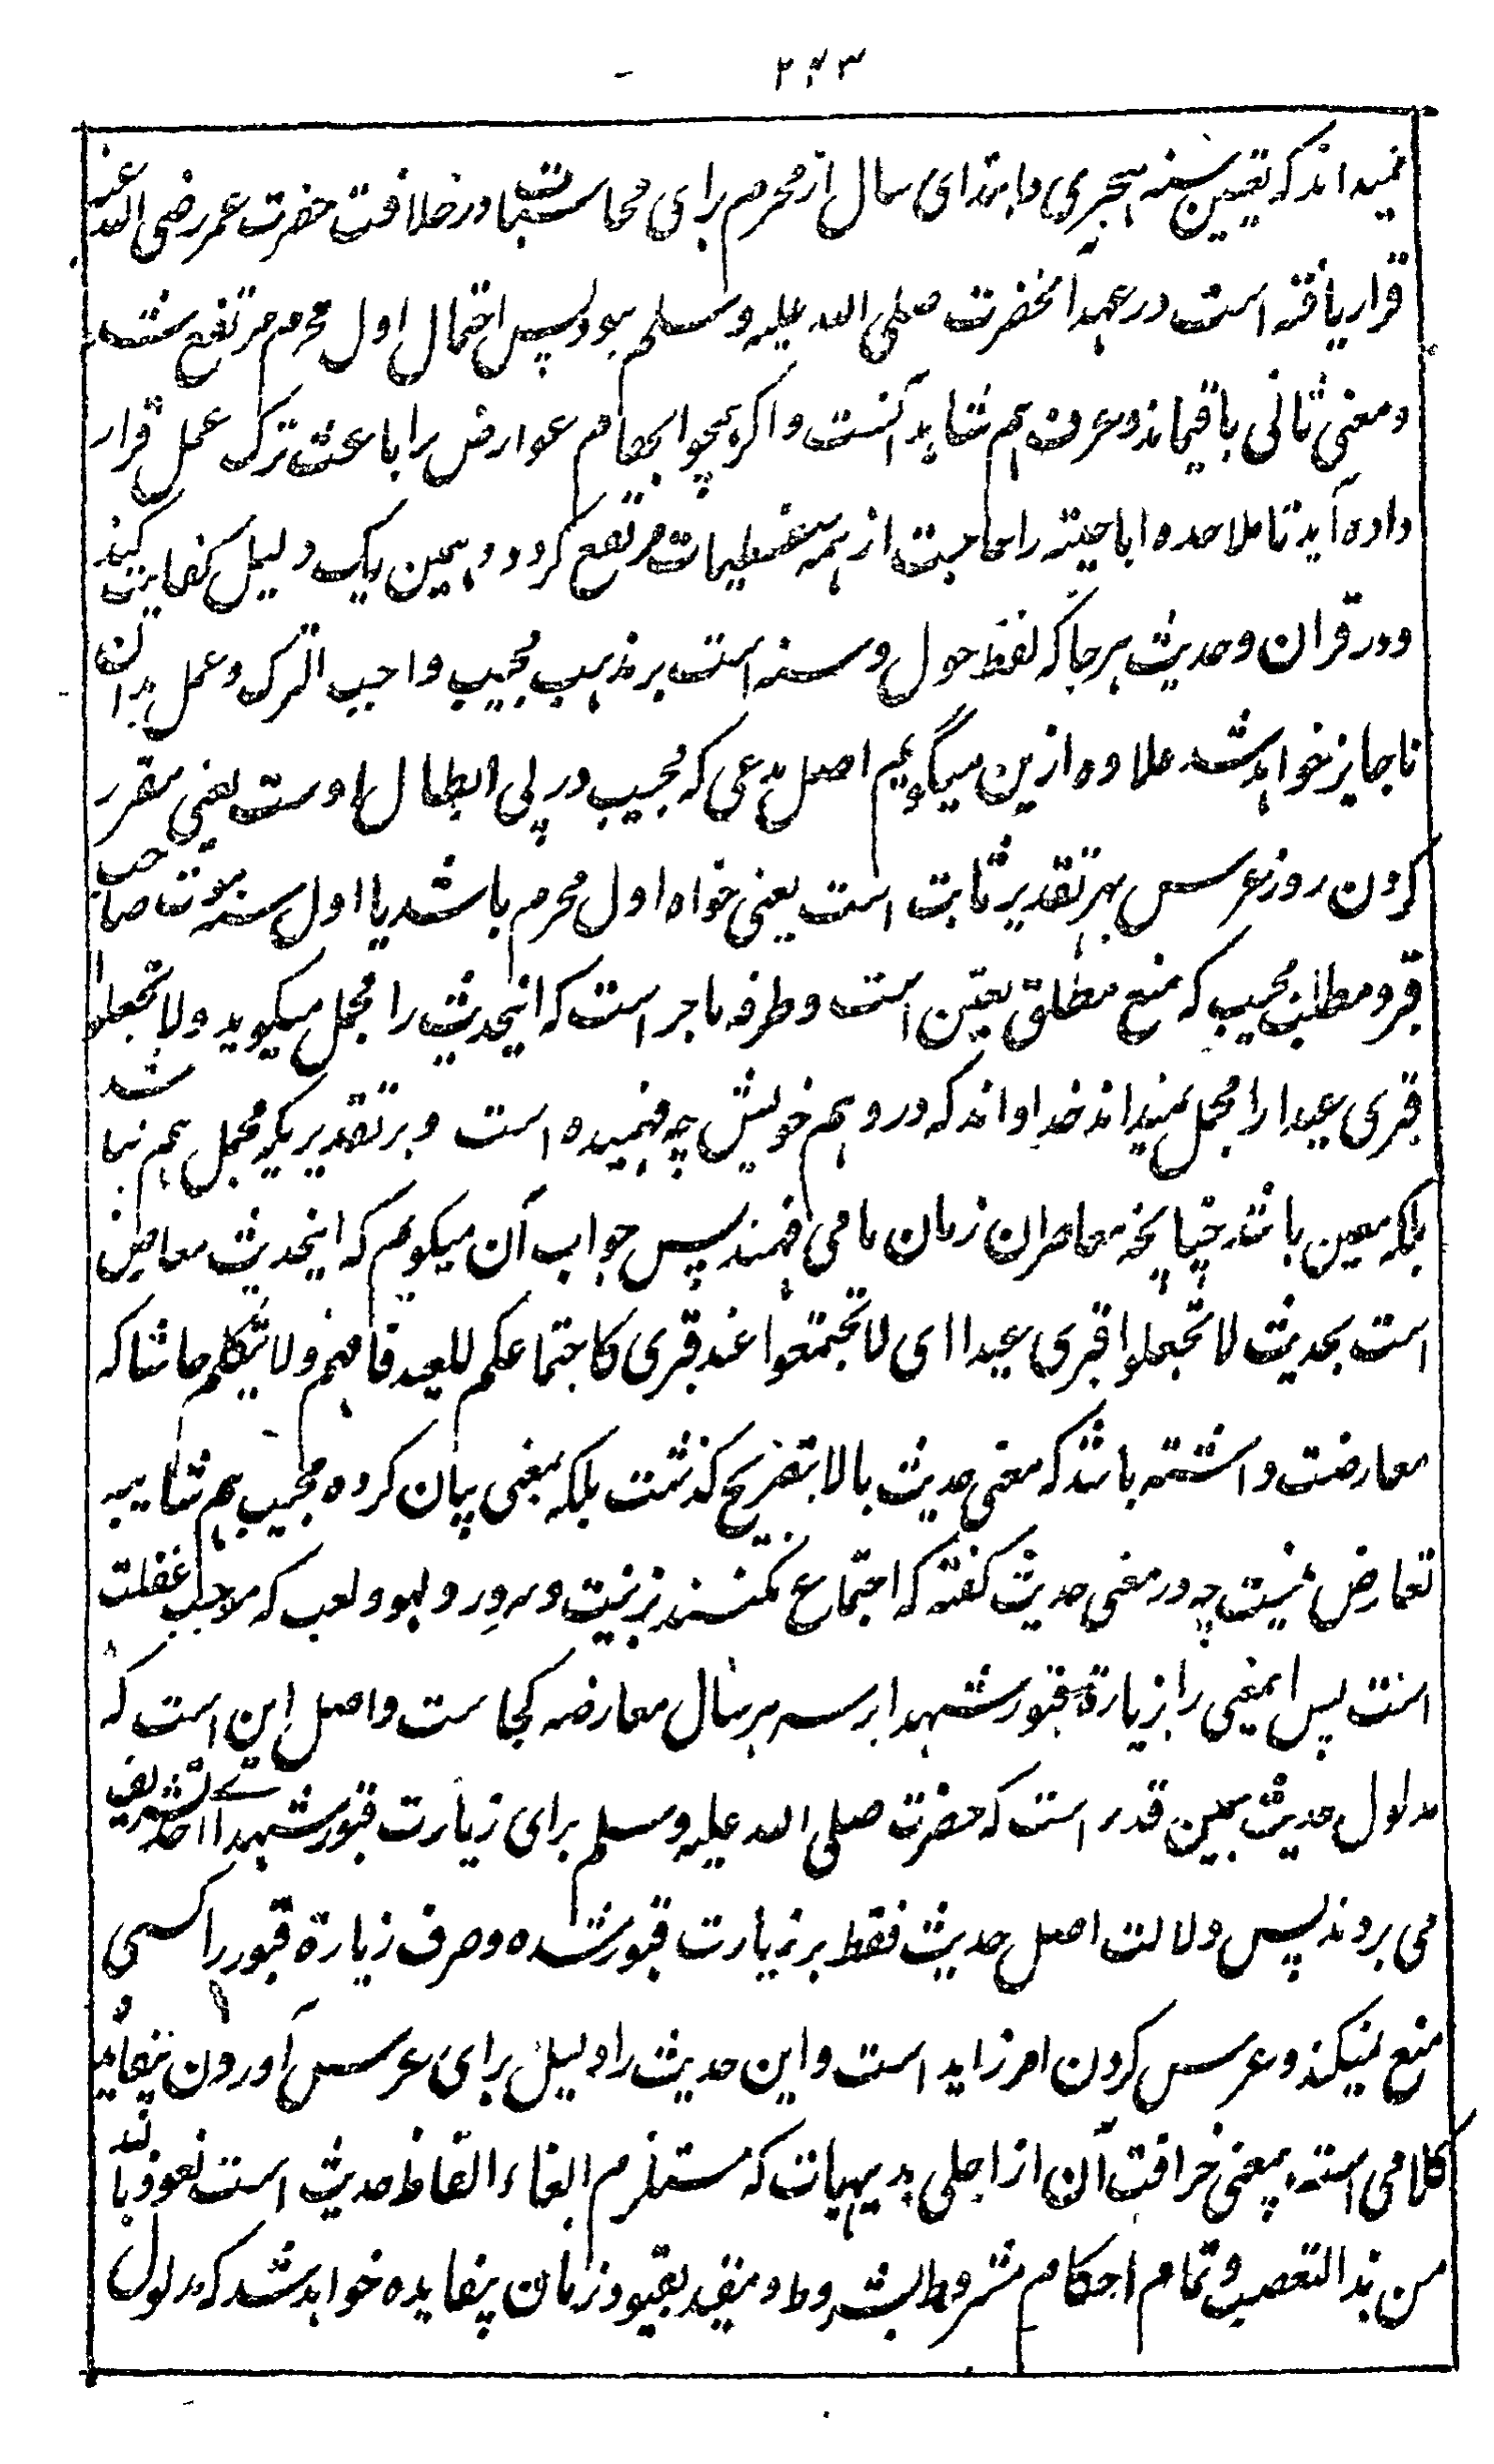 ۲۴۳
نمیداند که تعیین سنه هجری و ابتدای سال از محرم برای محاسبات در خلافت حضرت عمر رضی الله عنه
قرار یافته است در عهد آنحضرت صلی الله علیه وسلم نبود پس احتمال اول محرم مرتفع شد
و معنی ثانی باقیماند و عرف هم شاهد آنست و اگر همچو ابهام عوارض را باعث ترک عمل قرار
داده آید تا ملاحده اباحیته را حاجت از همه تعظیمات مرتفع گردد و همین یک دلیل کفایت کند
و در قران و حدیث هر جا که لفظ حول و سنه است بر مذهب مجیب واجب الترک و عمل بدان
ناجایز خواهد شد علاوه ازین میگویم اصل مدعی که مجیب در پی ابطال اوست یعنی مقرر
کردن روز عرس بهر تقدیر ثابت است یعنی خواه اول محرم باشد یا اول سنه موت صاحب
قبر و مطلب مجیب که منع مطلق تعین است و طرفه ماجر است که اینحدیث را مجمل میگوید و لا تجعلوا
قبری عیدا را مجمل نمیداند خدا داند که در وهم خویش چه فهمیده است و بر تقدیریکه مجمل هم نباشد
بلکه معین باشد چنانچه معاصران زمان ما می فهمند پس جواب آن میگویم که اینحدیث معارض
است بحدیث لا تجعلوا قبری عیدا ای لا تجتمعوا عند قبری کاجتماعکم للعید فافهم ولا تتکلم حاشا که
معارضت داشته باشد که معنی حدیث بالا بتصریح گذشت بلکه بمعنی بیان کرده مجیب هم شایبه
تعارض نیست چه در معنی حدیث گفته که اجتماع نکنند بزینت و سرور و لهو و لعب که موجب غفلت
است پس اینمعنی را بزیارة قبور شهدا بر سر هر سال معارضه کجاست و اصل این است که
مدلول حدیث همین قدر است که حضرت صلی الله علیه وسلم برای زیارت قبور شهدای احد تشریف
می بردند پس دلالت اصل حدیث فقط بر زیارت قبور شده و صرف زیارة قبور را کسی
منع نمیکند و عرس کردن امر زاید است و این حدیث را دلیل برای عرس آوردن بیفایده
کلامی است بیمعنی خرافت آن از اجلی بدیهیات که مستلزم الغاء الفاظ حدیث است نعوذ بالله
من هذا التعصب و تمام احکام مشروط بشروط و مقید بقیود زمان بیفایده خواهد شد که مدلول